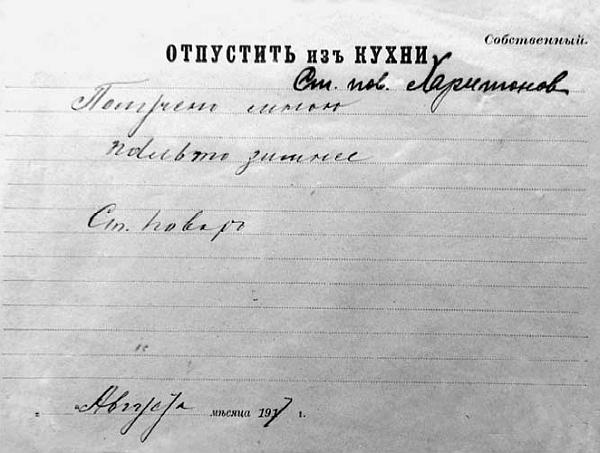 Собственный.
ОТПУСТИТЬ изъ КУХНИ
Ст. пов. Харитонов
Получено мною
пальто зимнее
Ст. поваръ
"
" Августа мѣсяца 1917 г.